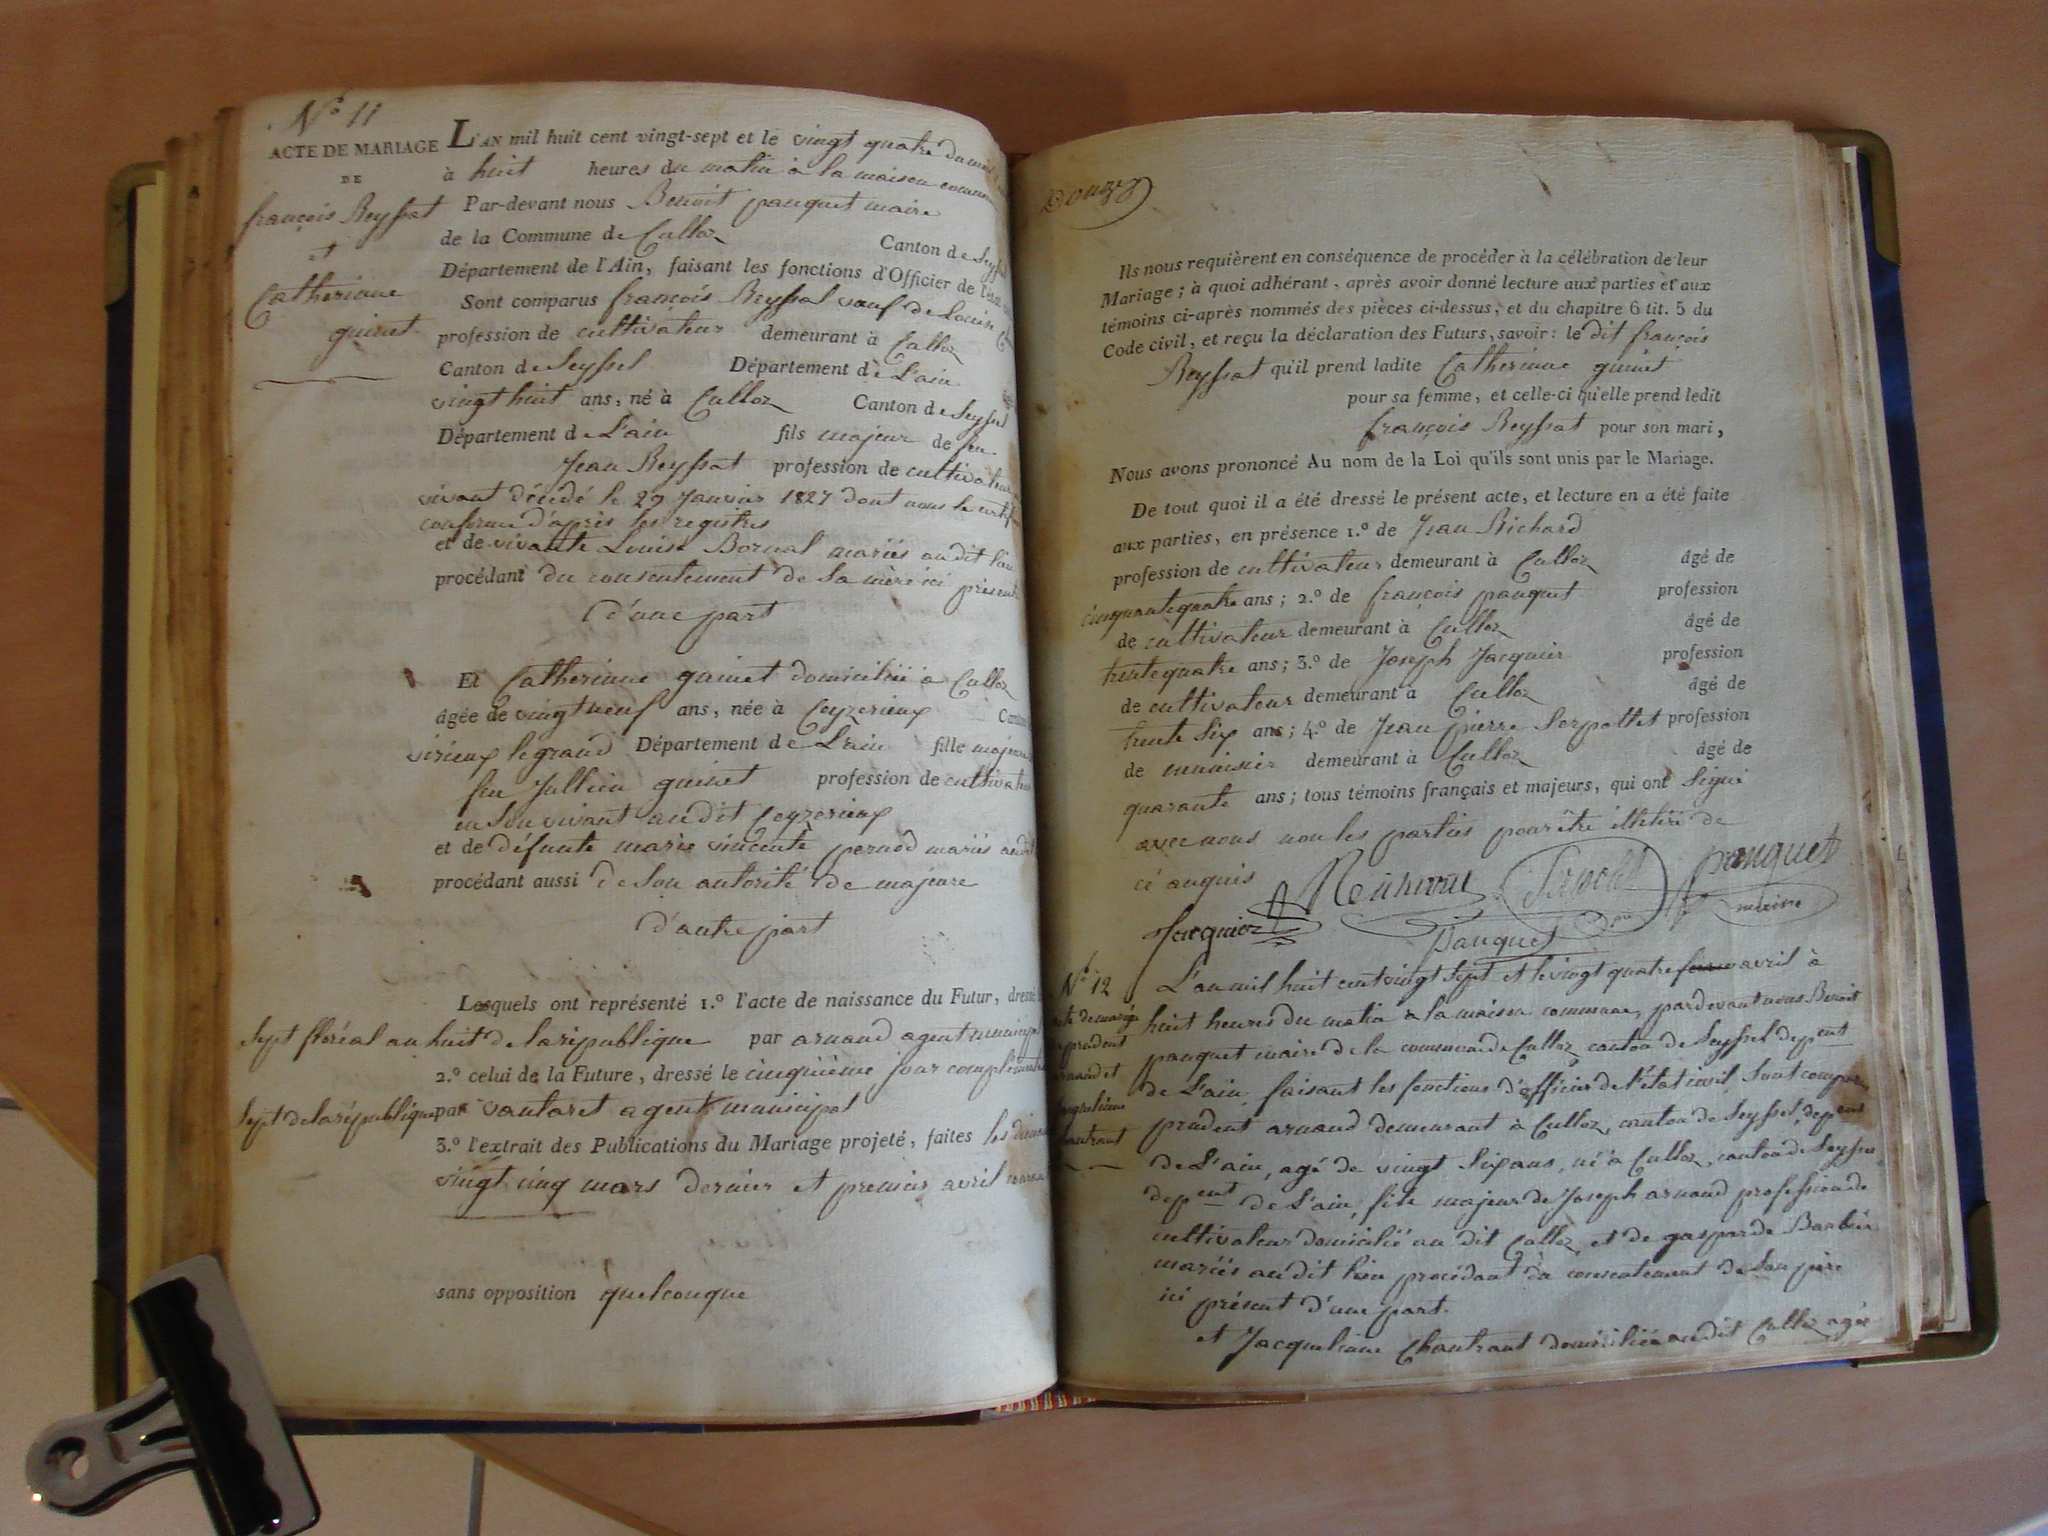 N.° 11
ACTE DE MARIAGE
DE
françois Reyssat
et
Catherinne
guinet
L'AN mil huit cent vingt-sept et le vingt quatre du mois
à huit heures du matin à la maison commune
Par-devant nous Benoit pauquet maire
de la Commune de Culloz Canton de Seyssel
Département de l'Ain, faisant les fonctions d'Officier de l'état
Sont comparus françois Reyssat veuf de Louise
profession de cultivateur demeurant à Culloz
Canton de Seyssel Département de L'ain
vingt huit ans, né à Culloz Canton de Seyssel
Département de L'ain fils majeur de feu
Jean Reyssat profession de cultivateur
vivant décédé le 29 Janvier 1827 dont nous le certif
conforme d'après les registres
et de vivante Louise Bornal mariés au dit lieu
procédant du consentement de sa mère ici présente
d'une part
Et Catherinne guinet domiciliée à Culloz
âgée de vingt neuf ans, née à Ceyzerieux Canton
virieux le grand Département de L'ain fille majeure
feu Jullien guinet profession de cultivateur
en son vivant audit Ceyzerieux
et de défunte marie vincente pernod mariés audit
procédant aussi de son autorité de majeure
d'autre part
Lesquels ont représenté 1.° l'acte de naissance du Futur, dressé
sept floréal an huit de la république par arnaud agent municipal
2.° celui de la Future, dressé le cinquième jour complémentaire
sept de la république par vautaret agent municipal
3.° l'extrait des Publications du Mariage projeté, faites les dimanches
vingt cinq mars dernier et premier avril courant
sans opposition quelconque
Douze
Ils nous requièrent en conséquence de procéder à la célébration de leur
Mariage; à quoi adhérant, après avoir donné lecture aux parties et aux
témoins ci-après nommés des pièces ci-dessus, et du chapitre 6 tit. 5 du
Code civil, et reçu la déclaration des Futurs, savoir: le dit françois
Reyssat qu'il prend ladite Catherinne guinet
pour sa femme, et celle-ci qu'elle prend ledit
françois Reyssat pour son mari,
Nous avons prononcé Au nom de la Loi qu'ils sont unis par le Mariage.
De tout quoi il a été dressé le présent acte, et lecture en a été faite
aux parties, en présence 1.° de Jean Richard
profession de cultivateur demeurant à Culloz âgé de
cinquante quatre ans; 2.° de françois pauquet profession
de cultivateur demeurant à Culloz âgé de
trente quatre ans; 3.° de Joseph Jacquier profession
de cultivateur demeurant à Culloz âgé de
trente six ans; 4.° de Jean pierre Serpollet profession
de menuisier demeurant à Culloz âgé de
quarante ans; tous témoins français et majeurs, qui ont signé
avec nous non les parties pour être illitéré de
cé anquis
pauquet
maire
Jacquier
Pauquet
N.° 12
acte de mariage
prudent
arnaud et
Jacquelinne
Chautrant
L'an mil huit cent vingt sept et le vingt quatre avril à
huit heures du matin à la maison commune, pardevant nous Benoit
pauquet maire de la commune de Culloz canton de Seyssel depent
de L'ain, faisant les fonctions d'officier de l'état civil, sont compar
prudent arnaud demeurant à Culloz, canton de Seyssel, depent
de L'ain, agé de vingt six ans, né à Culloz, canton de Seyssel
depent de L'ain, fils majeur de Joseph arnaud profession de
cultivateur domicilié au dit Culloz, et de gasparde Barbier
mariés audit lieu procédant du consentement de son père
ici présent d'une part.
et Jacquelinne Chautrant domiciliée audit Culloz agée